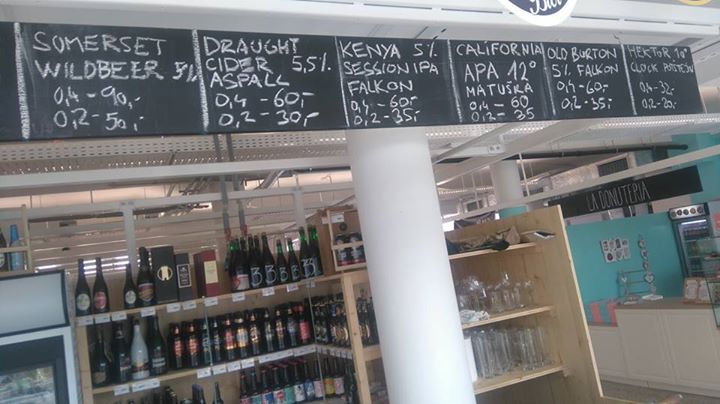 Bier
SOMERSET
WILDBEER 5%
0,4-90,-
0,2-50,-
DRAUGHT
CIDER 5,5%
ASPALL
0,4-60,-
0,2-30,-
KENYA 5%
SESSION IPA
FALKON
0,4-60,-
0,2-35,-
CALIFORNIA
APA 12°
MATUŠKA
0,4-60
0,2-35
OLD BURTON
5% FALKON
0,4-60,-
0,2-35,-
HEKTOR 10°
CLOCK POTŠTEJN
0,4-32-
0,2-20,-
LA DONUTERIA